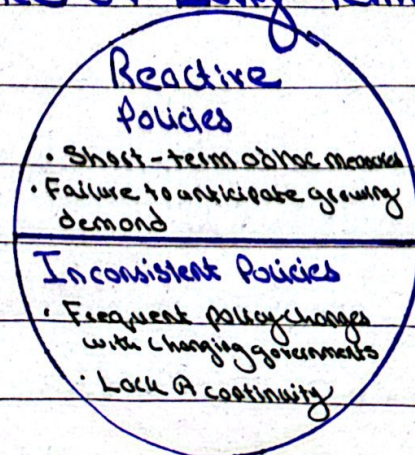 of Long Term
Reactive
Policies
• Short-term adhoc measures
• Failure to anticipate growing
demand
Inconsistent Policies
• Frequent policy changes
with changing governments
• Lack of continuity